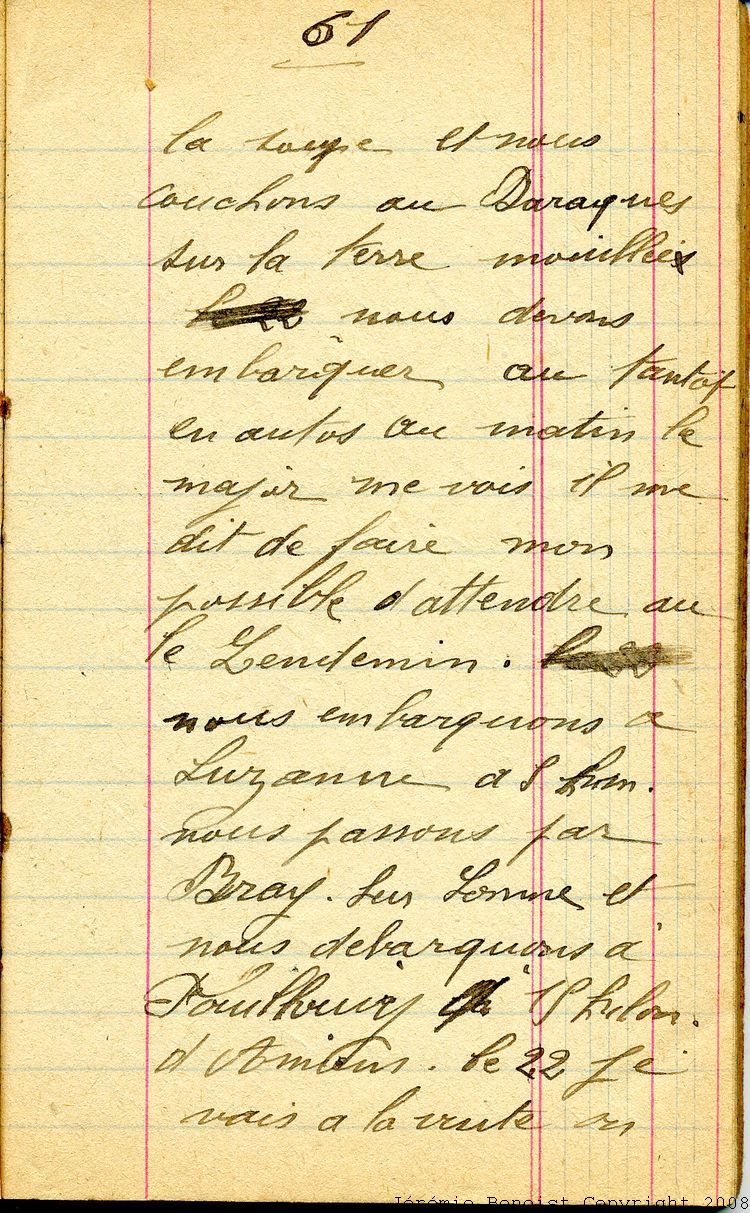 61
la soupe et nous
couchons au Baraques
sur la terre mouillée
nous devons
embarquer au tantôt
en autos au matin le
major me vois il me
dit de faire mon
possible d'attendre au
le Lendemin.
nous embarquons a
Suzanne a
nous passons par
Bray. sur Somme et
nous debarquons à
d'Amiens. le 22 je
vais a la visite on
Jérémie Benoist Copyright 2008